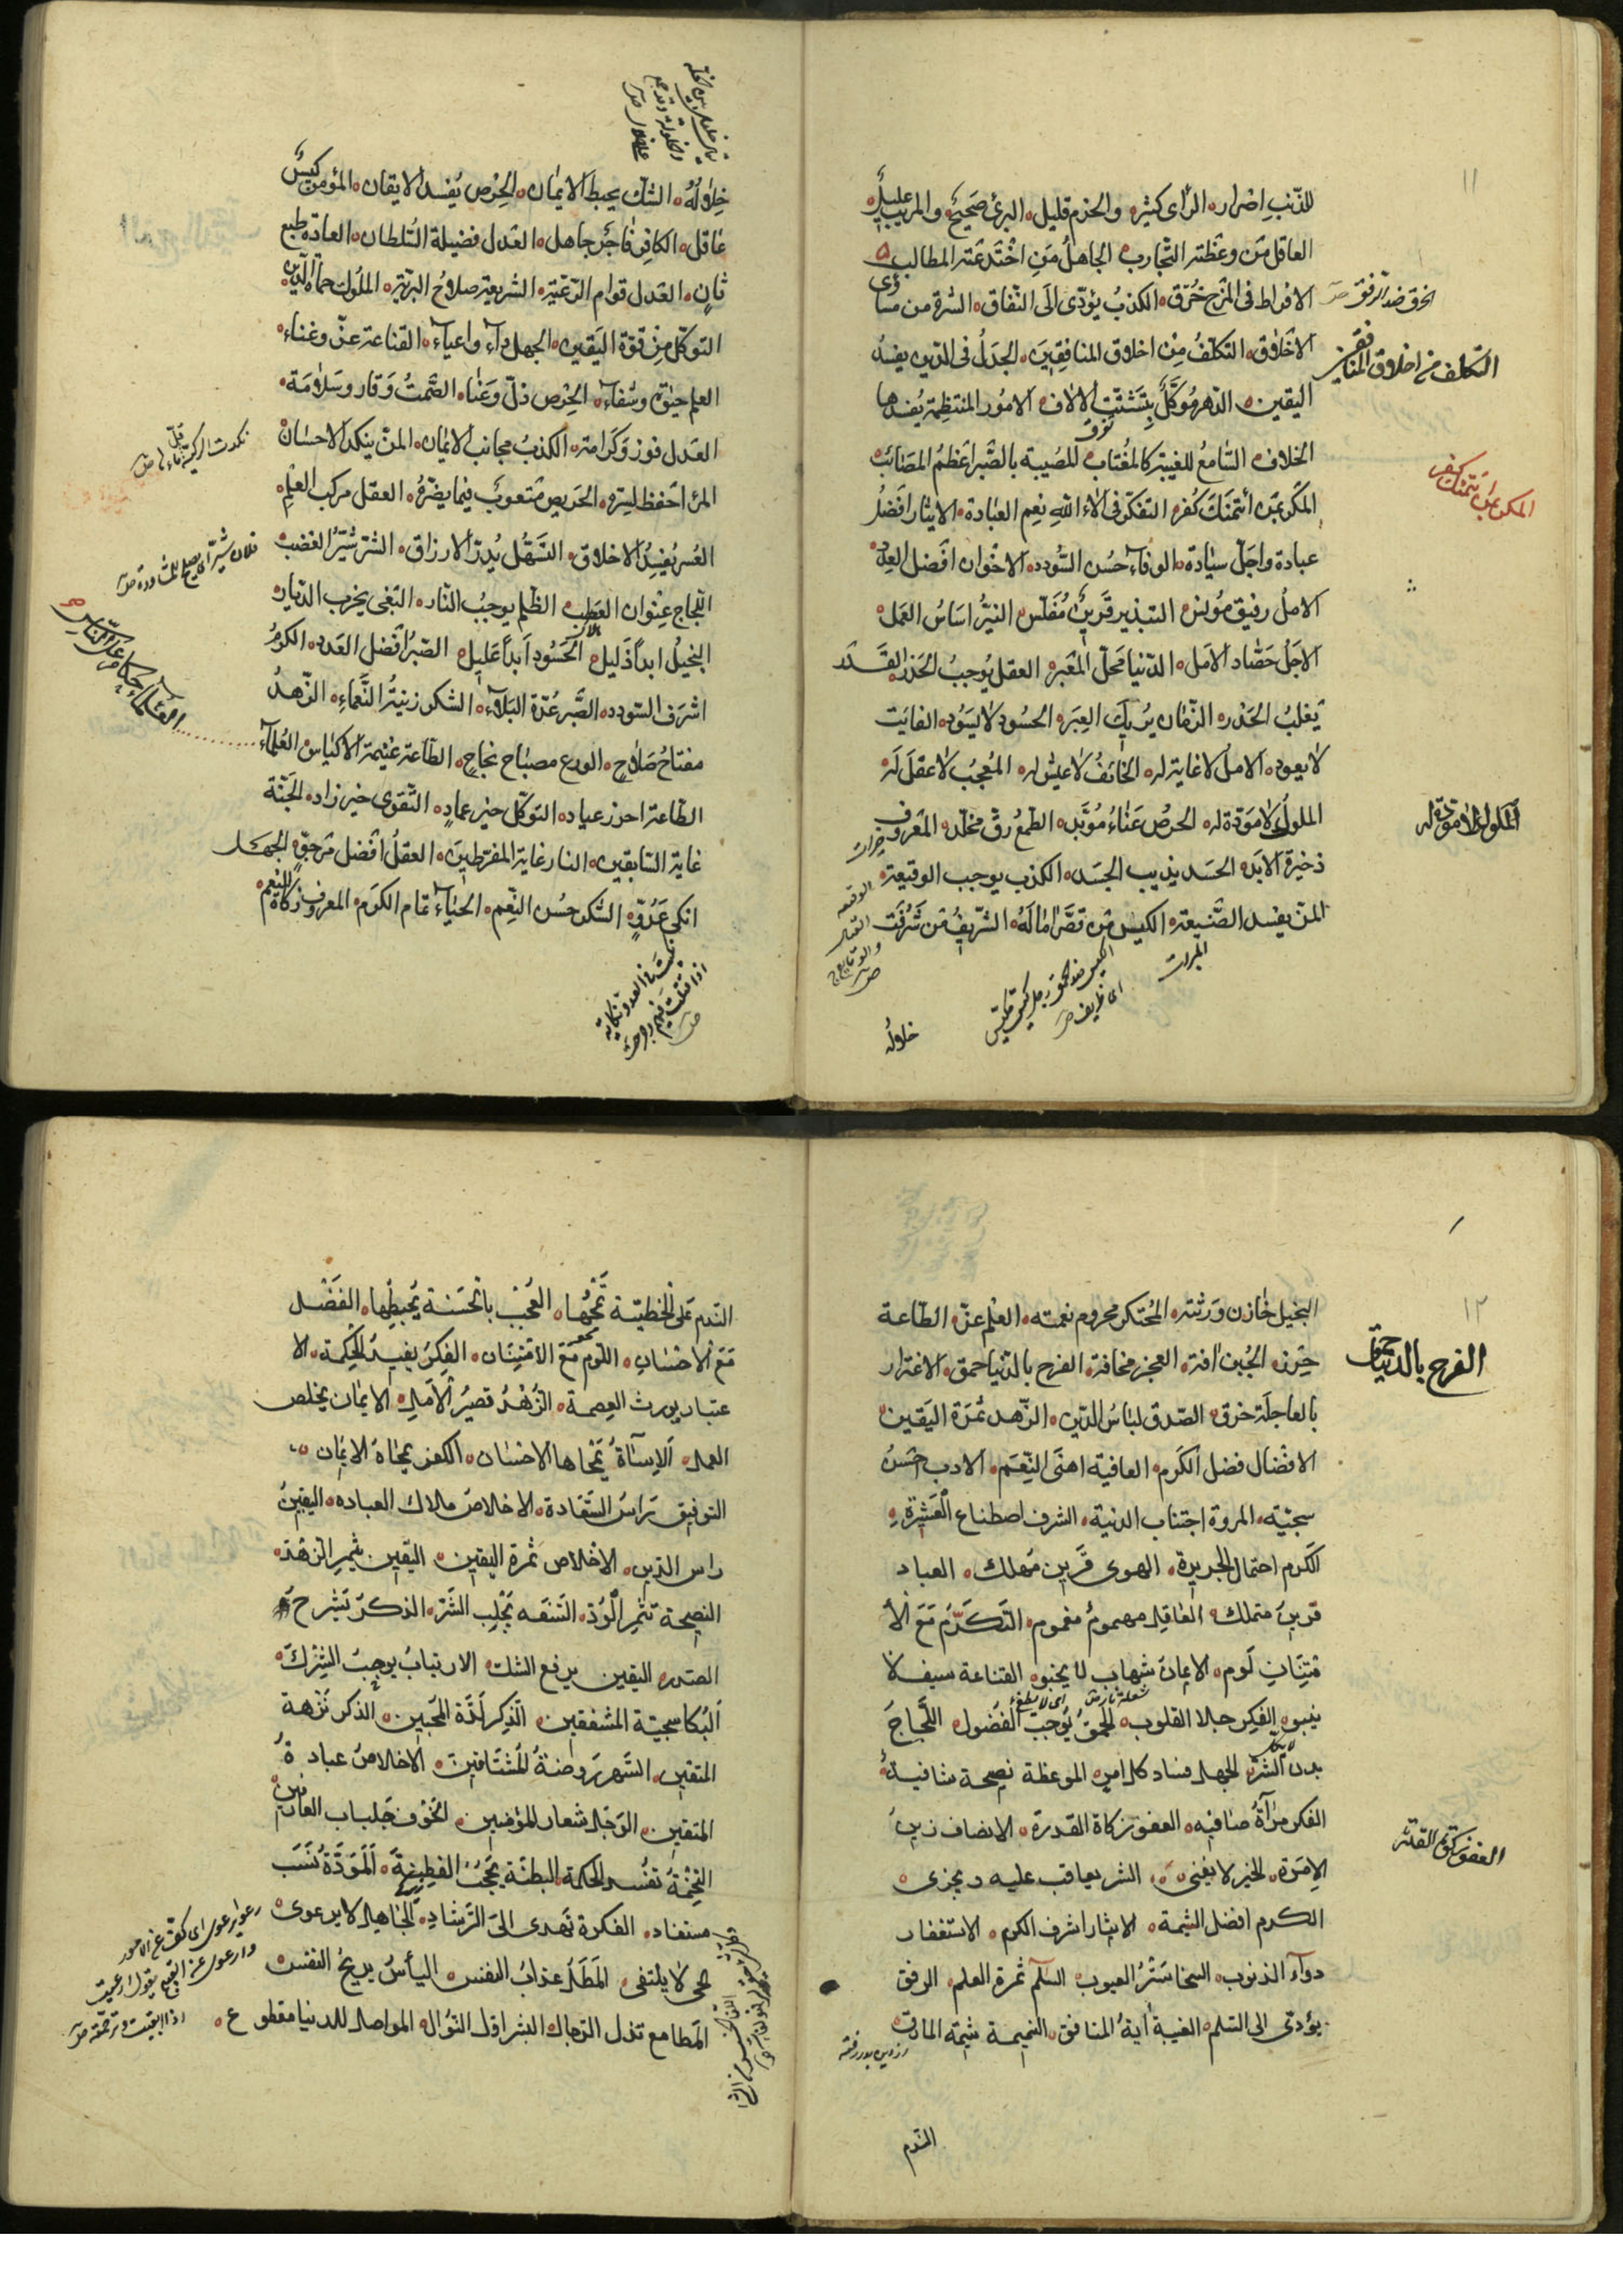 ١١
للذنب اضرار الرأى كثير والحزم قليل البرئ صحيح والمريب عليل
العاقل من وعظته التجارب الجاهل من اختدعته المطالب
الافراط فى المزح خرق الكذب يؤدّى الى النفاق الشره من مساوى
الاخلاق التكلف من اخلاق المنافقين الجدل فى الدين يفسد
اليقين الدهر موكّل بتشتيت الالاف الامور المنتظمة يفسدها
الخلاف السّامع للغيبة كالمغتاب المصيبة بالصّبر اعظم المصائب
المكر بمن ائتمنك كفر التفكر فى الاء الله نعم العبادة الايثار افضل
عبادة واجلّ سيادة الوفاء حسن السّودد الاخوان افضل العدد
الامل رفيق مونس التبذير قرين مفلس النيّة اساس العمل
الاجل حصّاد الامل الدّنيا محلّ العبر العقل يوجب الحذر القدر
يغلب الحذر الزّمان يريك العبر الحسود لا يسود الفايت
لا يعود الامل لا غاية له الخائف لا عيش له المعجب لا عقل له
الملول لا مودّة له الحرص عناء مؤبّد الطمع رق مخلّد المعروف
ذخيرة الابد الحسد يذيب الجسد الكذب يوجب الوقيعة
المنّ يفسد الصّنيعة الكيس من قصّر اماله الشّريف من شرفت
الخرق ضد الرفق
التكلف من اخلاق المنافقين
المكر بمن ائتمنك كفر
الملول لا مودّة له
خلاله
خلاله الشّك يحبط الايمان الحرص يفسد الايقان المؤمن كيّس
عاقل الكافر فاجر جاهل العدل فضيلة السّلطان العادة طبع
ثان العدل قوام الرّعيّة الشريعة صلاح البريّة الملوك حماة الدّين
التوكّل من قوّة اليقين الجهل داء واعياء القناعة عزّ وغناء
العلم حيوة وشفاء الحرص ذلّ وعناء الصّمت وقار وسلامة
العدل فوز وكرامة الكذب مجانب الايمان المنّ ينكد الاحسان
المرء احفظ لسرّه الحريص متعوب فيما يضرّه العقل مركب العلم
العسر يفسد الاخلاق التسهّل يدرّ الارزاق الشرّ يثير الغضب
اللّجاج عنوان العطب الظلم يوجب النّار البغى يخرب الدّيار
البخيل ابدا ذليل الحسود ابدا عليل الصّبر افضل العدد الكرم
اشرف السّودد الصّبر عدّة البلاء الشكر زينة النّعماء الزّهد
مفتاح صلاح الورع مصباح نجاح الطّاعة غنيمة الاكياس العلماء
الطّاعة احرز عتاد التوكّل خير عماد التّقوى خير زاد الجنّة
غاية السّابقين النار غاية المفرطين العقل افضل مرجوّ الجهل
انكى عدوّ الشّكر حسن النّعم الحياء تمام الكرم المعروف زكاة النّعم
العلماء حكّام على النّاس
١٢
البخيل خازن ورثته المحتكر محروم نعمته العلم عزّ الطّاعة
حرز الجبن افة العجز مخافة الفرح بالدّنيا حمق الاغترار
بالعاجلة خرق الصّدق لباس الدّين الزّهد ثمرة اليقين
الافضال فضل الكرم العافية اهنى النّعم الادب احسن
سجيّة المروة اجتناب الدنية الشرف اصطناع العشيرة
الكرم احتمال الجريرة الهوى قرين مهلك العباد
قرين متملك العاقل مهموم مغموم التكرّم مع الا
متنان لوم الايمان شهاب لا يخبو القناعة سيف لا
ينبو الفكر جلا القلوب الحمق يوجب الفضول اللّجاج
بدر الشرّ الجهل فساد كل امر الموعظة نصيحة شافية
الفكر مرآة صافيه العفو زكاة القدرة الانصاف زين
الامرة الخير لا يفنى الشر يعاقب عليه ويجزى
الكرم افضل الشيمة الايثار اشرف الكرم الاستغفار
دوآء الذنوب السخا ستر العيوب السلم ثمرة العلم الرفق
يؤدّى الى السّلم الغيبة أية المنافق النميمة شيمة المارق
الفرح بالدنيا حمق
العفو زكوة القدرة
الندم
النّدم على الخطيّة تمحها العجب بالحسنة يحبطها الفضل
مع الاحسان اللوم مع الامتنان الفكر يفيد الحكمة الا
عتبار يورث العصمة الزّهد قصير الامل الايمان يخلص
العمل الاساة يمحاها الاحسان الكفر يمحاه الايمان
التوفيق راس السّعادة الاخلاص ملاك العباده اليقين
راس الدّين الاخلاص ثمرة اليقين اليقين يثمر الزهد
النصيحة تثمر الودّ السّفه يجلب الشّرّ الذكر يشرح
الصدر اليقين يرفع الشك الارتياب يوجب الشّرك
البكا سجيّة المشفقين الذكر لذّة المحبين الذكر نزهة
المتقين السّهر روضة المشتاقين الاخلاص عبادة
المتقين الوجل شعار المؤمنين الخوف جلباب العارفين
التخمة تفسد الحكمة البطنة تحجب الفطنة المودّة نسب
مستفاد الفكرة تهدى الى الرّشاد الجاهل لا يرعوى
الحى لا يلتفى المطل عذاب النفس اليأس يريح النفس
المطامع تذل الرّجال البشر اوّل النّوال المواصل للدنيا مقطوع